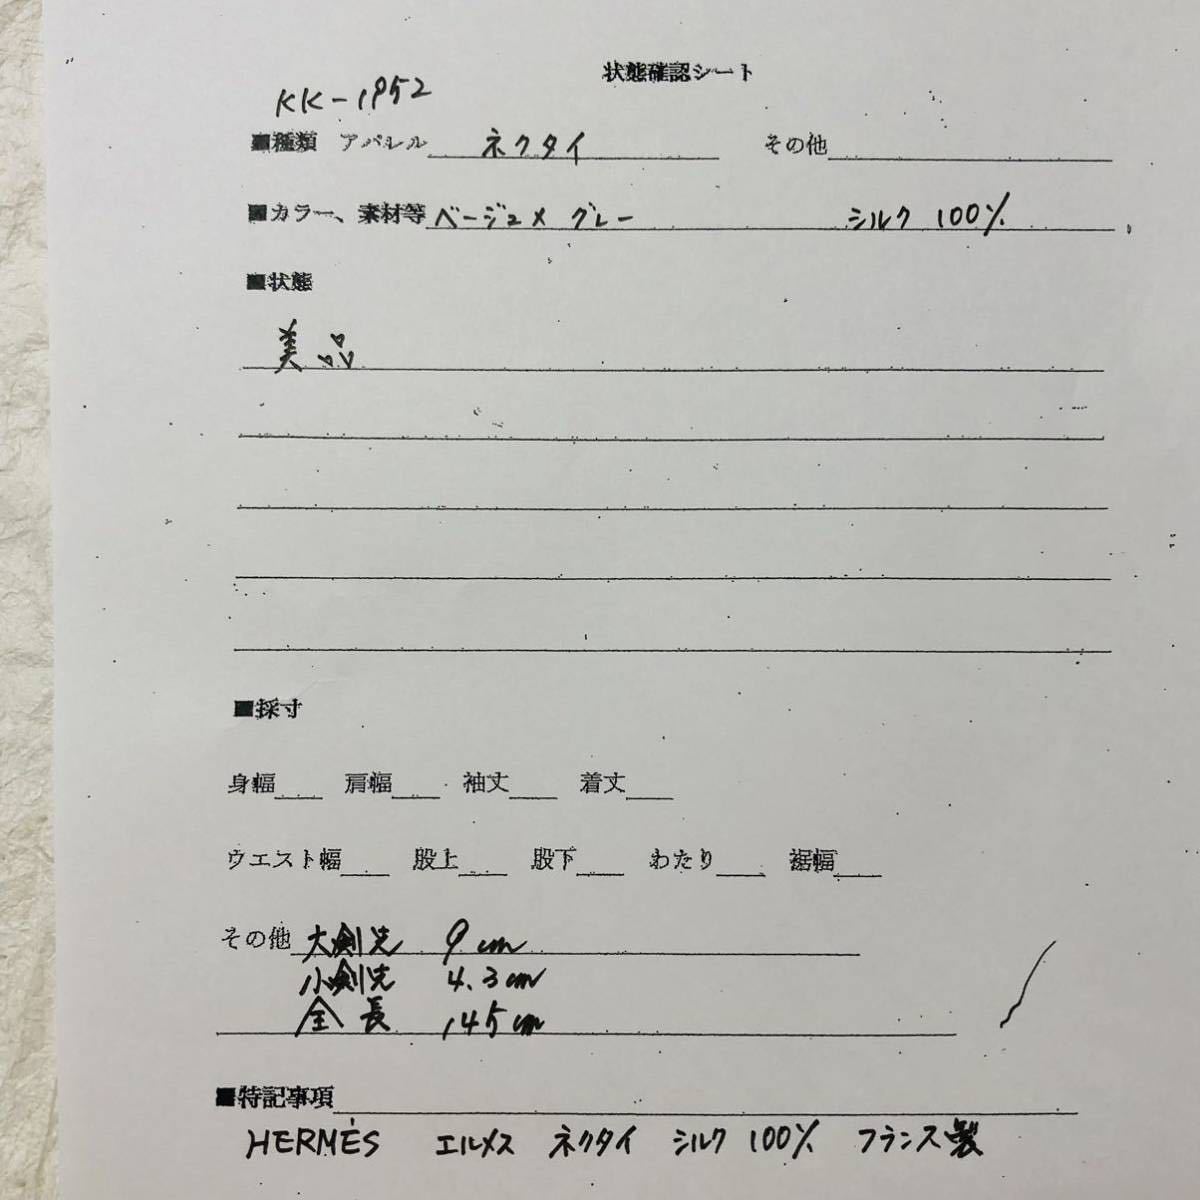 状態確認シート
KK-1952
■種類 アパレル ネクタイ その他
■カラー、素材等 ベージュ × グレー シルク 100%
■状態
美品
■採寸
身幅 肩幅 袖丈 着丈
ウエスト幅 股上 股下 わたり 裾幅
その他 大剣先 9cm
小剣先 4.3cm
全長 145cm
■特記事項
HERMÈS エルメス ネクタイ シルク 100% フランス製